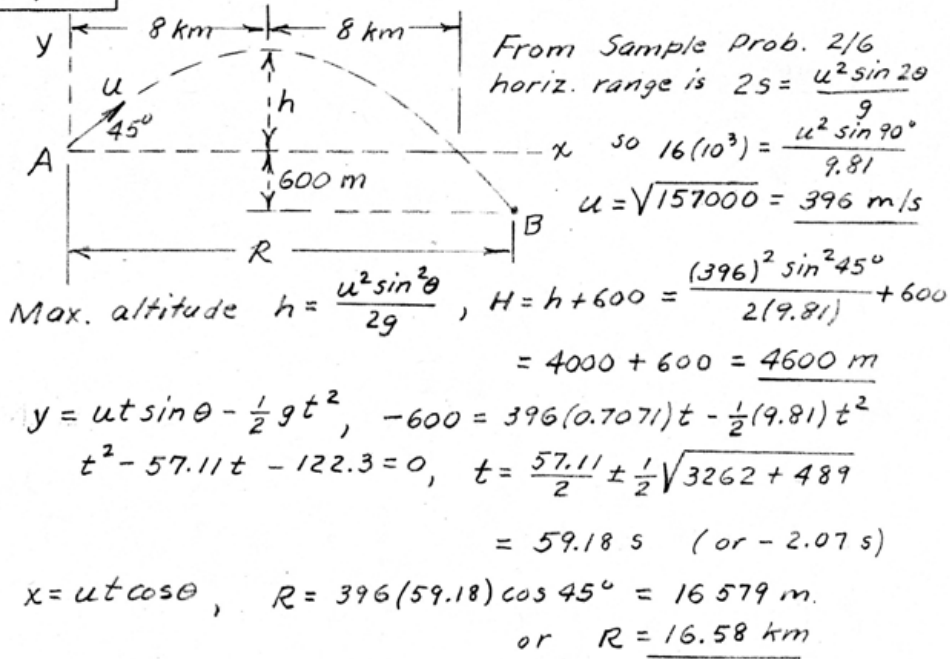 8 km 8 km
y
u
45°
h
A
x
600 m
B
R
From Sample Prob. 2/6
horiz. range is 2s = u² sin 2θ / g
so 16(10³) = u² sin 90° / 9.81
u = √157000 = 396 m/s
Max. altitude h = u² sin²θ / 2g , H = h + 600 = (396)² sin² 45° / 2(9.81) + 600
= 4000 + 600 = 4600 m
y = ut sin θ - ½ gt², -600 = 396(0.7071)t - ½(9.81)t²
t² - 57.11t - 122.3 = 0, t = 57.11/2 ± ½√3262 + 489
= 59.18 s (or - 2.07 s)
x = ut cos θ , R = 396(59.18) cos 45° = 16 579 m.
or R = 16.58 km